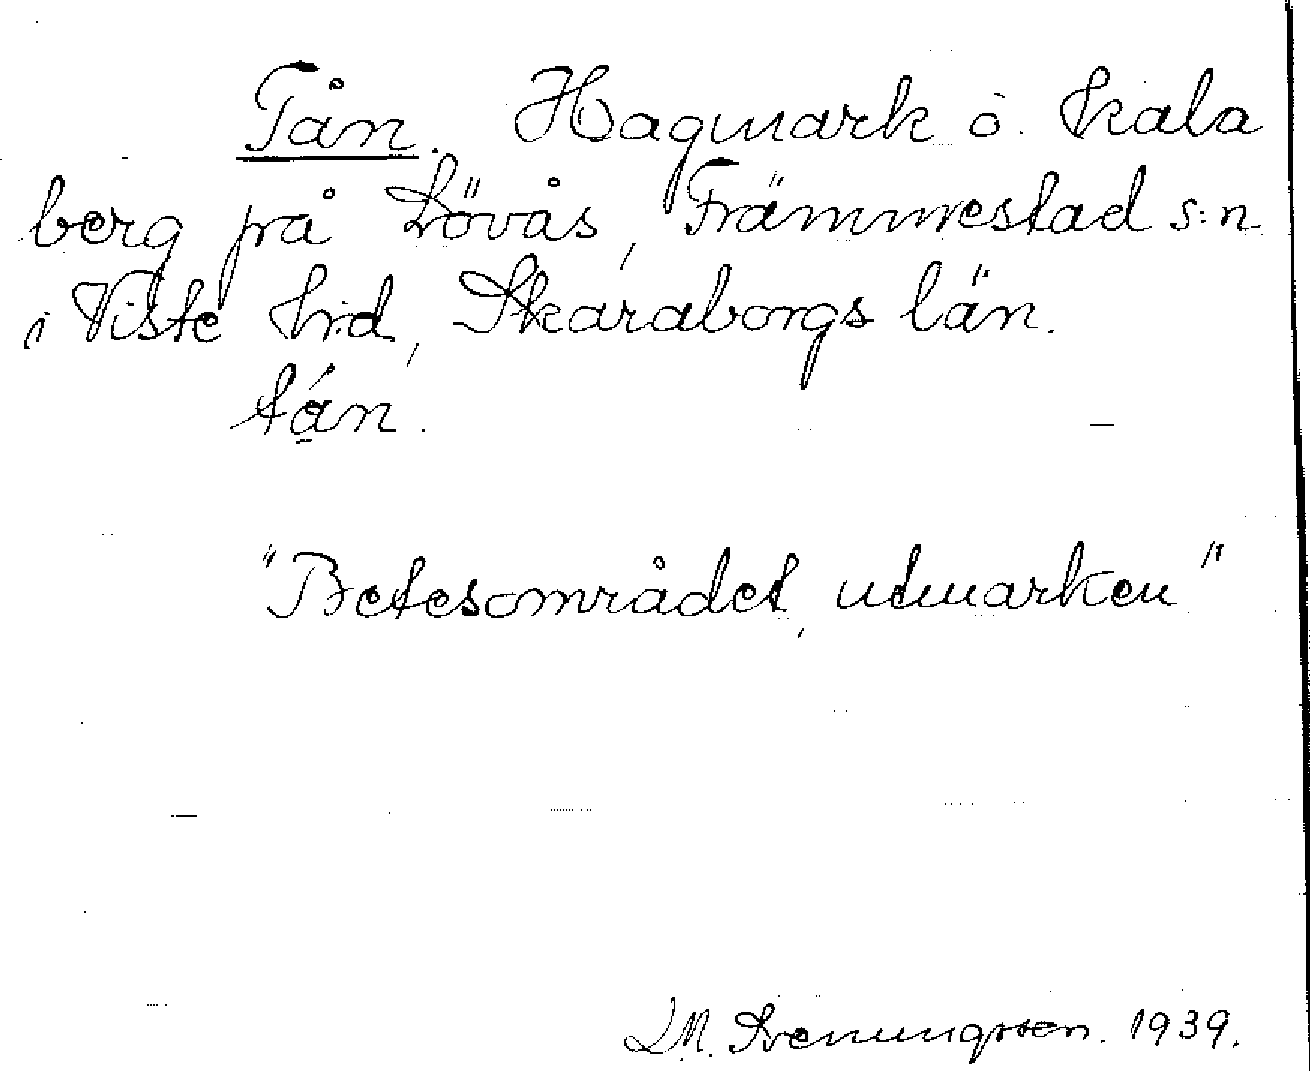 Tån. Hagmark ö. Skala
berg på Lövås, Främmestad s:n
i Viste hrd, Skaraborgs län.
tán.
"Betesområdet, utmarken"
D.N. Svenungsson. 1939.